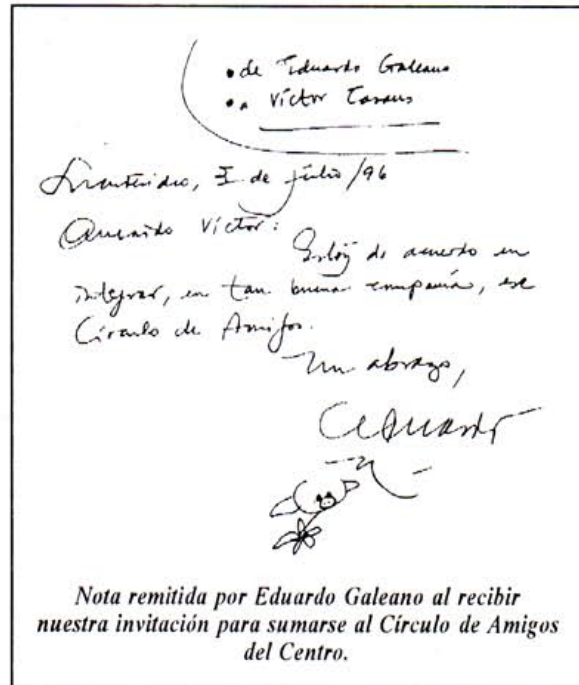 • de Eduardo Galeano
• a Víctor
Montevideo, I de julio/96
Querido Víctor:
Estoy de acuerdo en
integrar, en tan buena compañía, ese
Círculo de Amigos.
Un abrazo,
Eduardo
Nota remitida por Eduardo Galeano al recibir
nuestra invitación para sumarse al Círculo de Amigos
del Centro.